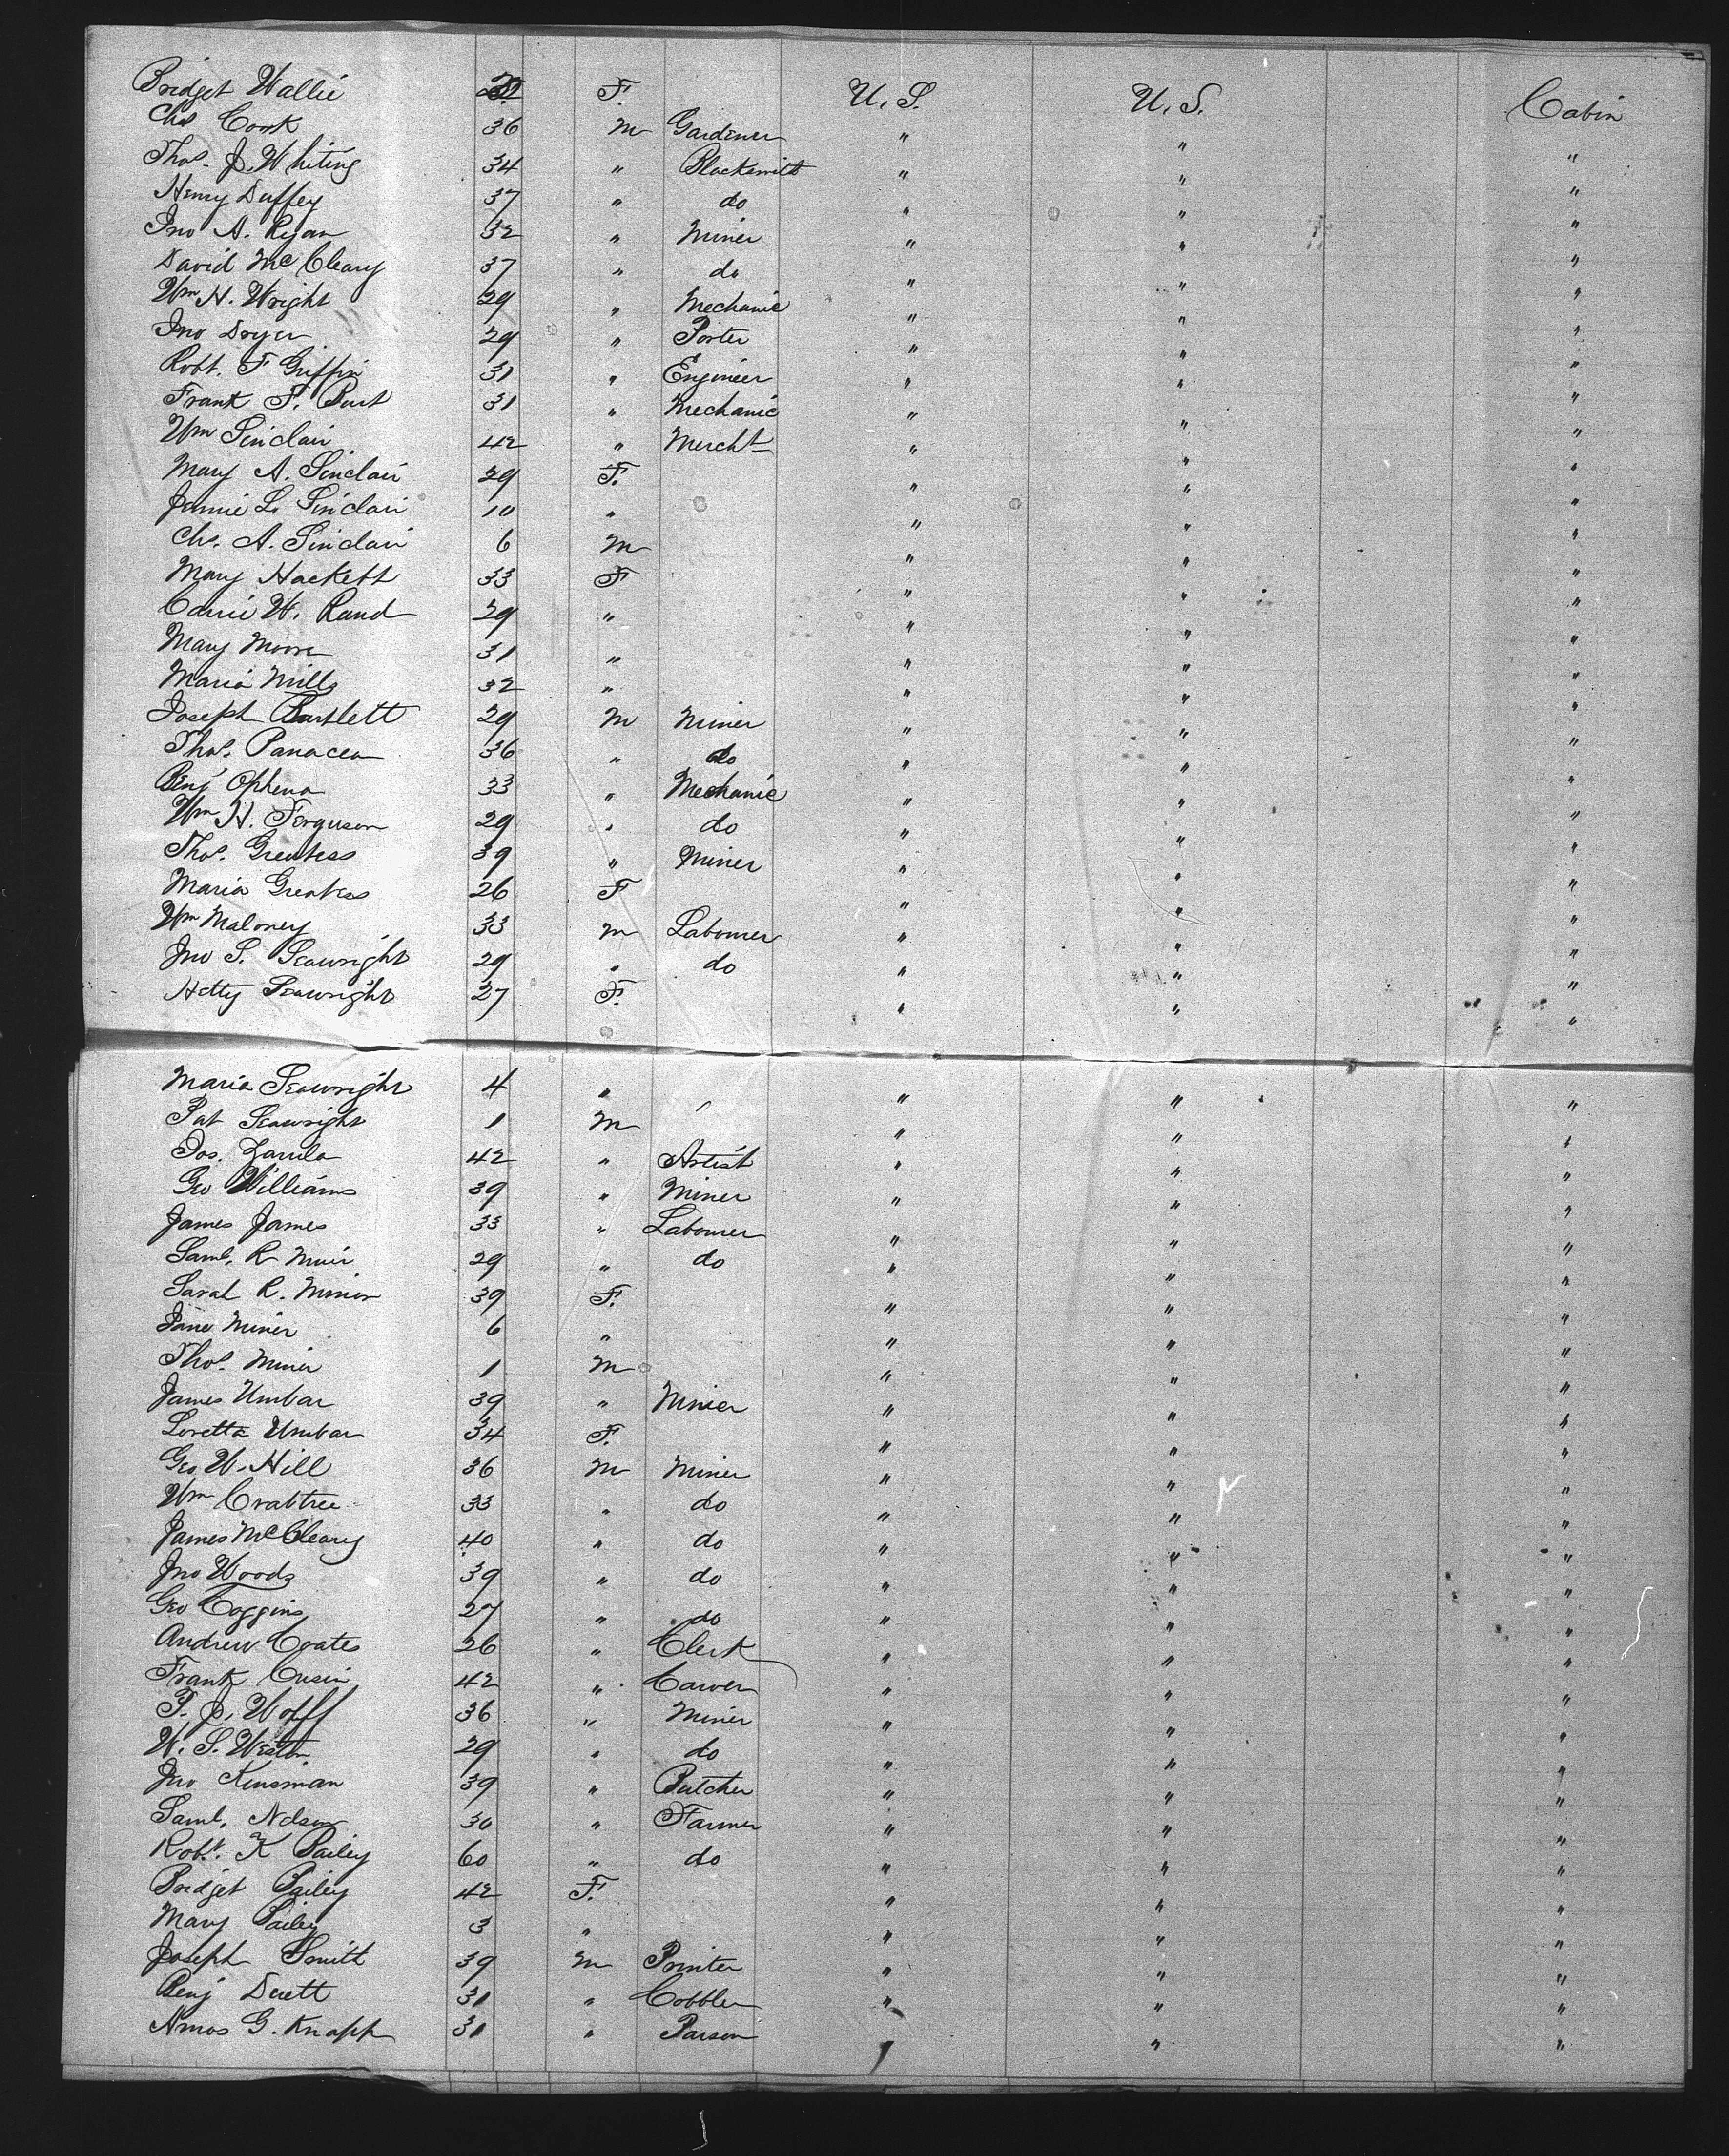 Bridget Wallie F. U. S. U. S. Cabin
Chs Cook 36 m Gardener " " "
Thos. J. Whiting 34 " Blacksmith " " "
Henry Duffey 37 " do " " "
Jno A. Ryan 32 " Miner " " "
David McCleary 37 " do " " "
Wm H. Wright 29 " Mechanic " " "
Jno Dryer 29 " Porter " " "
Robt. F Griffin 31 " Engineer " " "
Frank F. Burt 31 " Mechanic " " "
Wm Sinclair 42 " Mercht " " "
Mary A. Sinclair 29 F. " " "
Jennie L. Sinclair 10 " " " "
Chs. A. Sinclair 6 m " " "
Mary Hackett 33 F " " "
Carrie W. Rand 29 " " " "
Mary Moore 31 " " " "
Maria Mills 32 " " " "
Joseph Bartlett 29 m Miner " " "
Thos. Panacea 36 " do " " "
Benj Ophena 33 " Mechanic " " "
Wm H. Ferguson 29 " do " " "
Thos. Greatess 39 " Miner " " "
Maria Greatess 26 F " " "
Wm Maloney 33 m Labourer " " "
Jno S. Seawright 29 " do " " "
Hetty Seawright 27 F. " " "
Maria Seawright 4 " " " "
Pat Seawright 1 m " " "
Jos. 42 " Artist " " "
Geo Williams 39 " Miner " " "
James James 33 " Labourer " " "
Saml. R Muir 29 " do " " "
Sarah R. Minor 39 F. " " "
Jane Miner 6 " " " "
Thos. Miner 1 m " " "
James Umbar 39 " Miner " " "
Loretta Umbar 34 F. " " "
Geo W. Hill 36 m Miner " " "
Wm Crabtree 33 " do " " "
James McCleary 40 " do " " "
Jno Woods 39 " do " " "
Geo Coggins 27 " do " " "
Andrew Coates 26 " Clerk " " "
Frank Cusin 42 " Carver " " "
P. J. Wolff 36 " Miner " " "
W. S. Weston 29 " do " " "
Jno Kinsman 39 " Butcher " " "
Saml. Nelson 30 " Farmer " " "
Robt. K Bailey 60 " do " " "
Bridget Bailey 42 F. " " "
Mary Bailey 3 " " " "
Joseph Smith 39 m Printer " " "
Benj Duett 31 " Cobbler " " "
Amos G. Knapp 31 " Parson " " "